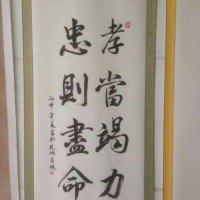 孝當竭力
忠則盡命